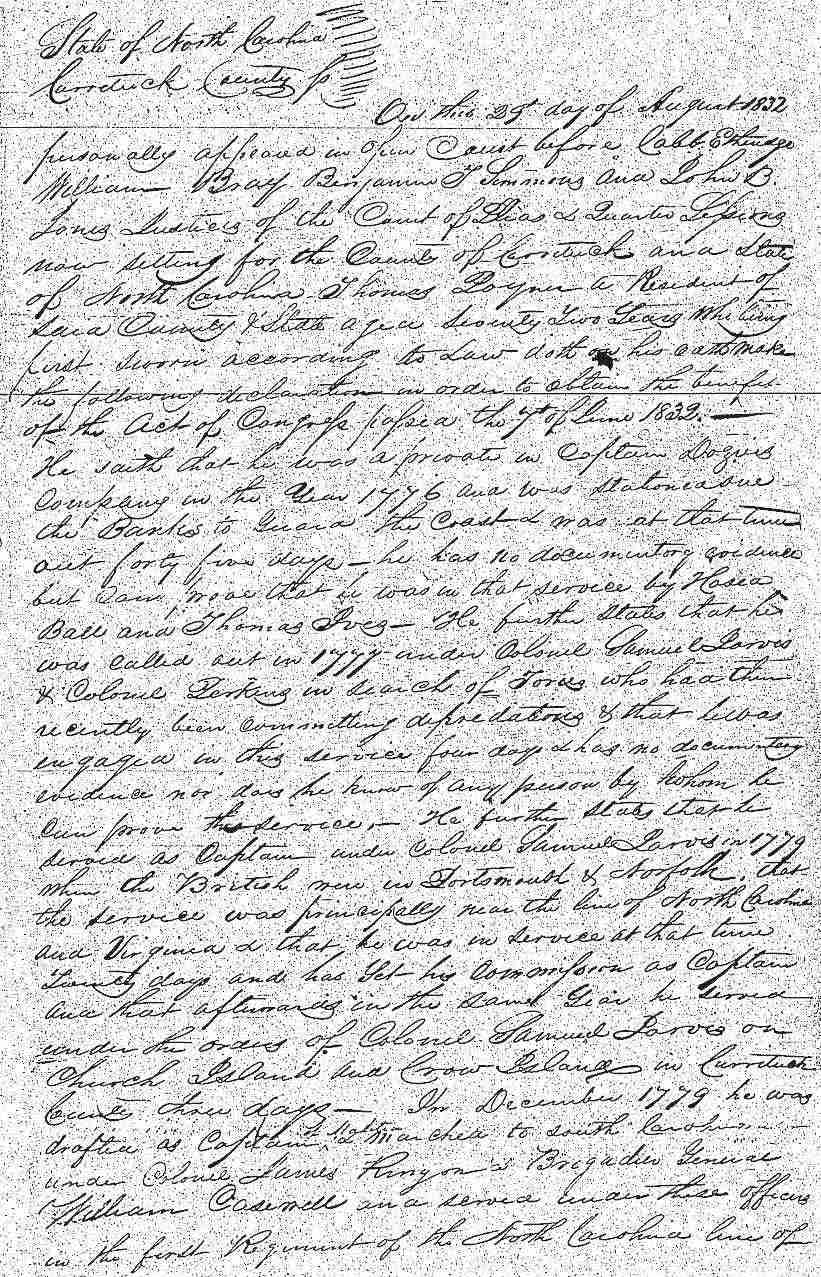 State of North Carolina
Currituck County Ss
On this 29th day of August 1832
personally appeared in open Court before Caleb Etheridge
William Bray Benjamin T Simmons and John B.
Jones Justices of the Court of Pleas & Quarter Sessions
now setting for the County of Currituck and State
of North Carolina Thomas Poyner a Resident of
said County & State aged seventy Two Years Who being
first sworn according to Law doth on his oath make
the following declaration in order to obtain the benefit
of the Act of Congress passed the 7th of June 1832. —
He saith that he was a private in Captain
Company in the Year 1776 and was stationed on
the Banks to Guard the Coast & was at that time
out forty five days — he has no documentory evidence
but can prove that he was in that service by Hosea
Ball and Thomas Ives — He further States that he
was called out in 1777 under Colonel Samuel Jarvis
& Colonel Perkins in search of Tories who had then
recently been committing depredations & that he was
engaged in this service four days & has no documentory
evidence nor does he know of any person by whom he
can prove this service — He further States that he
served as Captain under Colonel Samuel Jarvis in 1779
when the British were in Portsmouth & Norfolk, that
the service was principally near the line of North Carolina
and Virginia & that he was in service at that time
Twenty days and has Yet his Commission as Captain
and that afterwards in the same Year he served
under the orders of Colonel Samuel Jarvis on
Church Island and Crow Island in Currituck
County three days — In December 1779 he was
drafted as Captain & marched to south Carolina
under Colonel James Kinyon & Brigadier General
William Casewell and served under these officers
in the first Regiment of the North Carolina line of